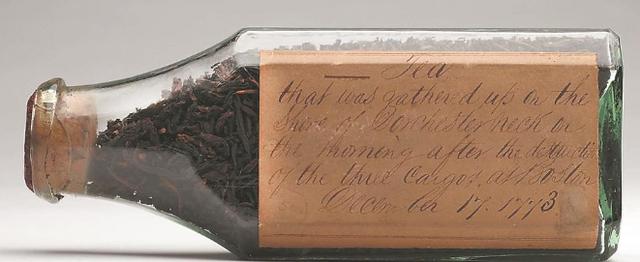 Tea
that was gathered up on the
shore of Dorchester neck on
the morning after the destruction
of the three Cargos, at Boston
December 17. 1773.